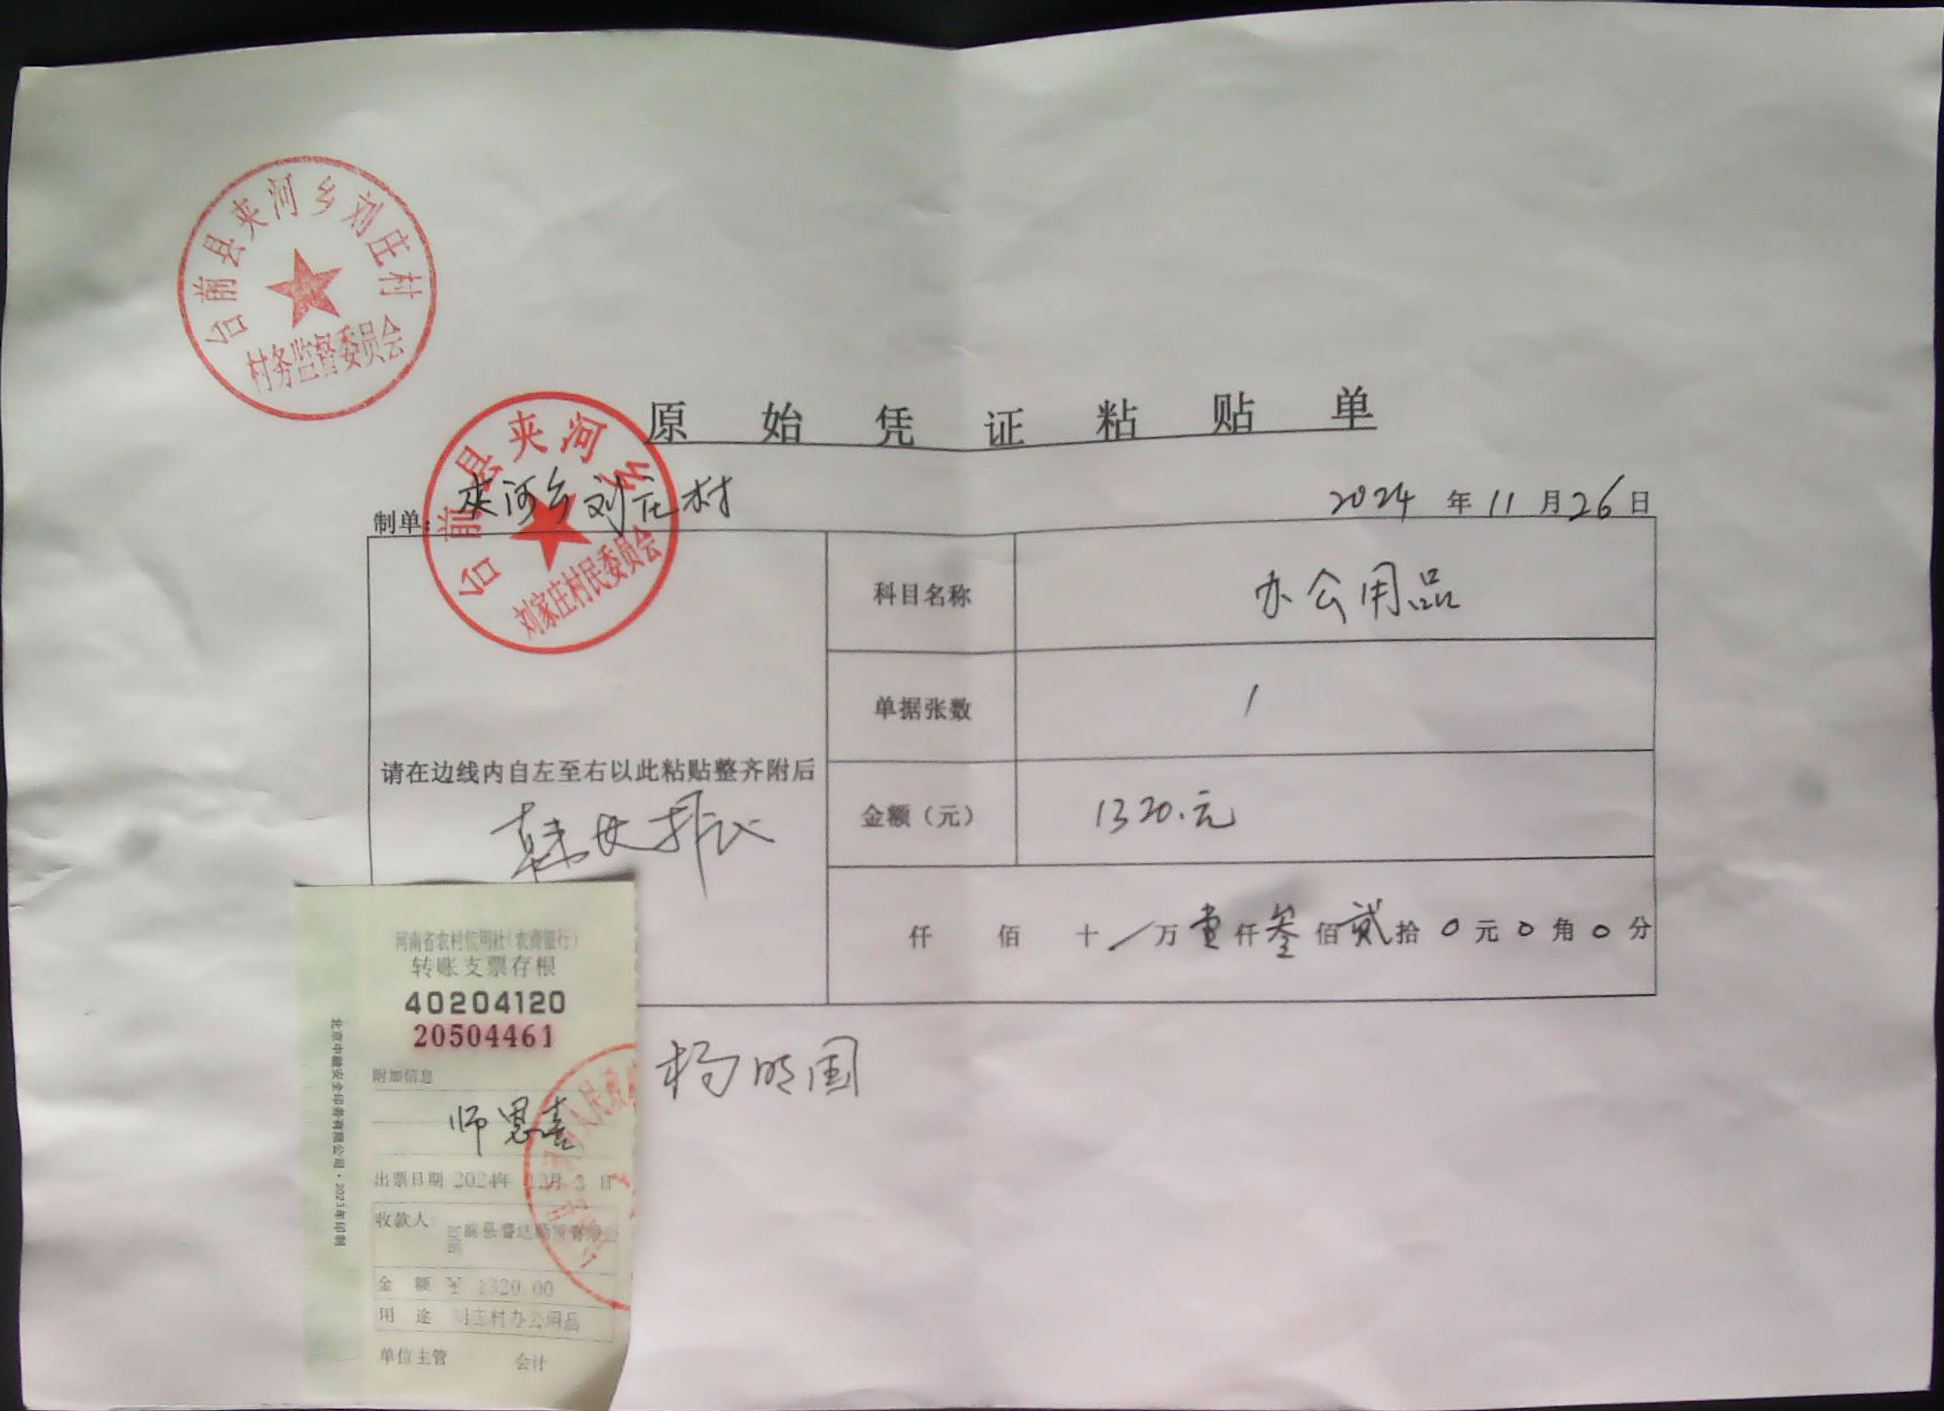 台前县夹河乡刘庄村
村务监督委员会
原始凭证粘贴单
台前县夹河乡
刘家庄村民委员会
制单:夹河乡刘庄村
2024年11月26日
科目名称 办公用品
单据张数 1
请在边线内自左至右以此粘贴整齐附后
金额(元) 1320.元
仟 佰 十/万壹仟叁佰贰拾0元0角0分
河南省农村信用社(农商银行)
转账支票存根
40204120
20504461
附加信息
师恩喜
杨明国
出票日期 2024年12月3日
收款人:
金额 ¥ 1320.00
用途 刘庄村办公用品
单位主管 会计
北京中融安全印务有限公司·2023年印制